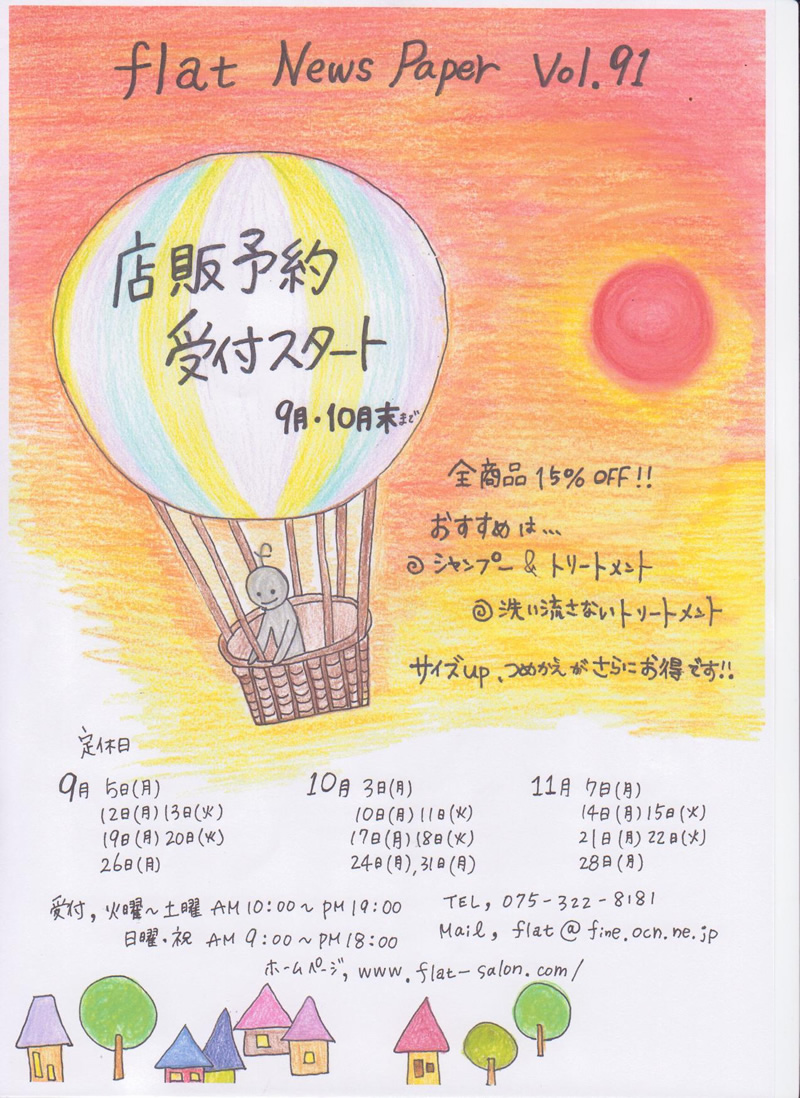 flat News Paper Vol.91
店販予約
受付スタート
9月・10月末まで
全商品 15% OFF!!
おすすめは...
◎シャンプー & トリートメント
◎洗い流さないトリートメント
サイズup、つめかえがさらにお得です!!
定休日
9月 5日(月)
12日(月) 13日(火)
19日(月) 20日(火)
26日(月)
10月 3日(月)
10日(月) 11日(火)
17日(月) 18日(火)
24日(月), 31日(月)
11月 7日(月)
14日(月) 15日(火)
21日(月) 22日(火)
28日(月)
受付, 火曜〜土曜 AM10:00〜PM19:00
日曜・祝 AM 9:00〜PM18:00
TEL, 075-322-8181
Mail, flat@fine.ocn.ne.jp
ホームページ, www.flat-salon.com/